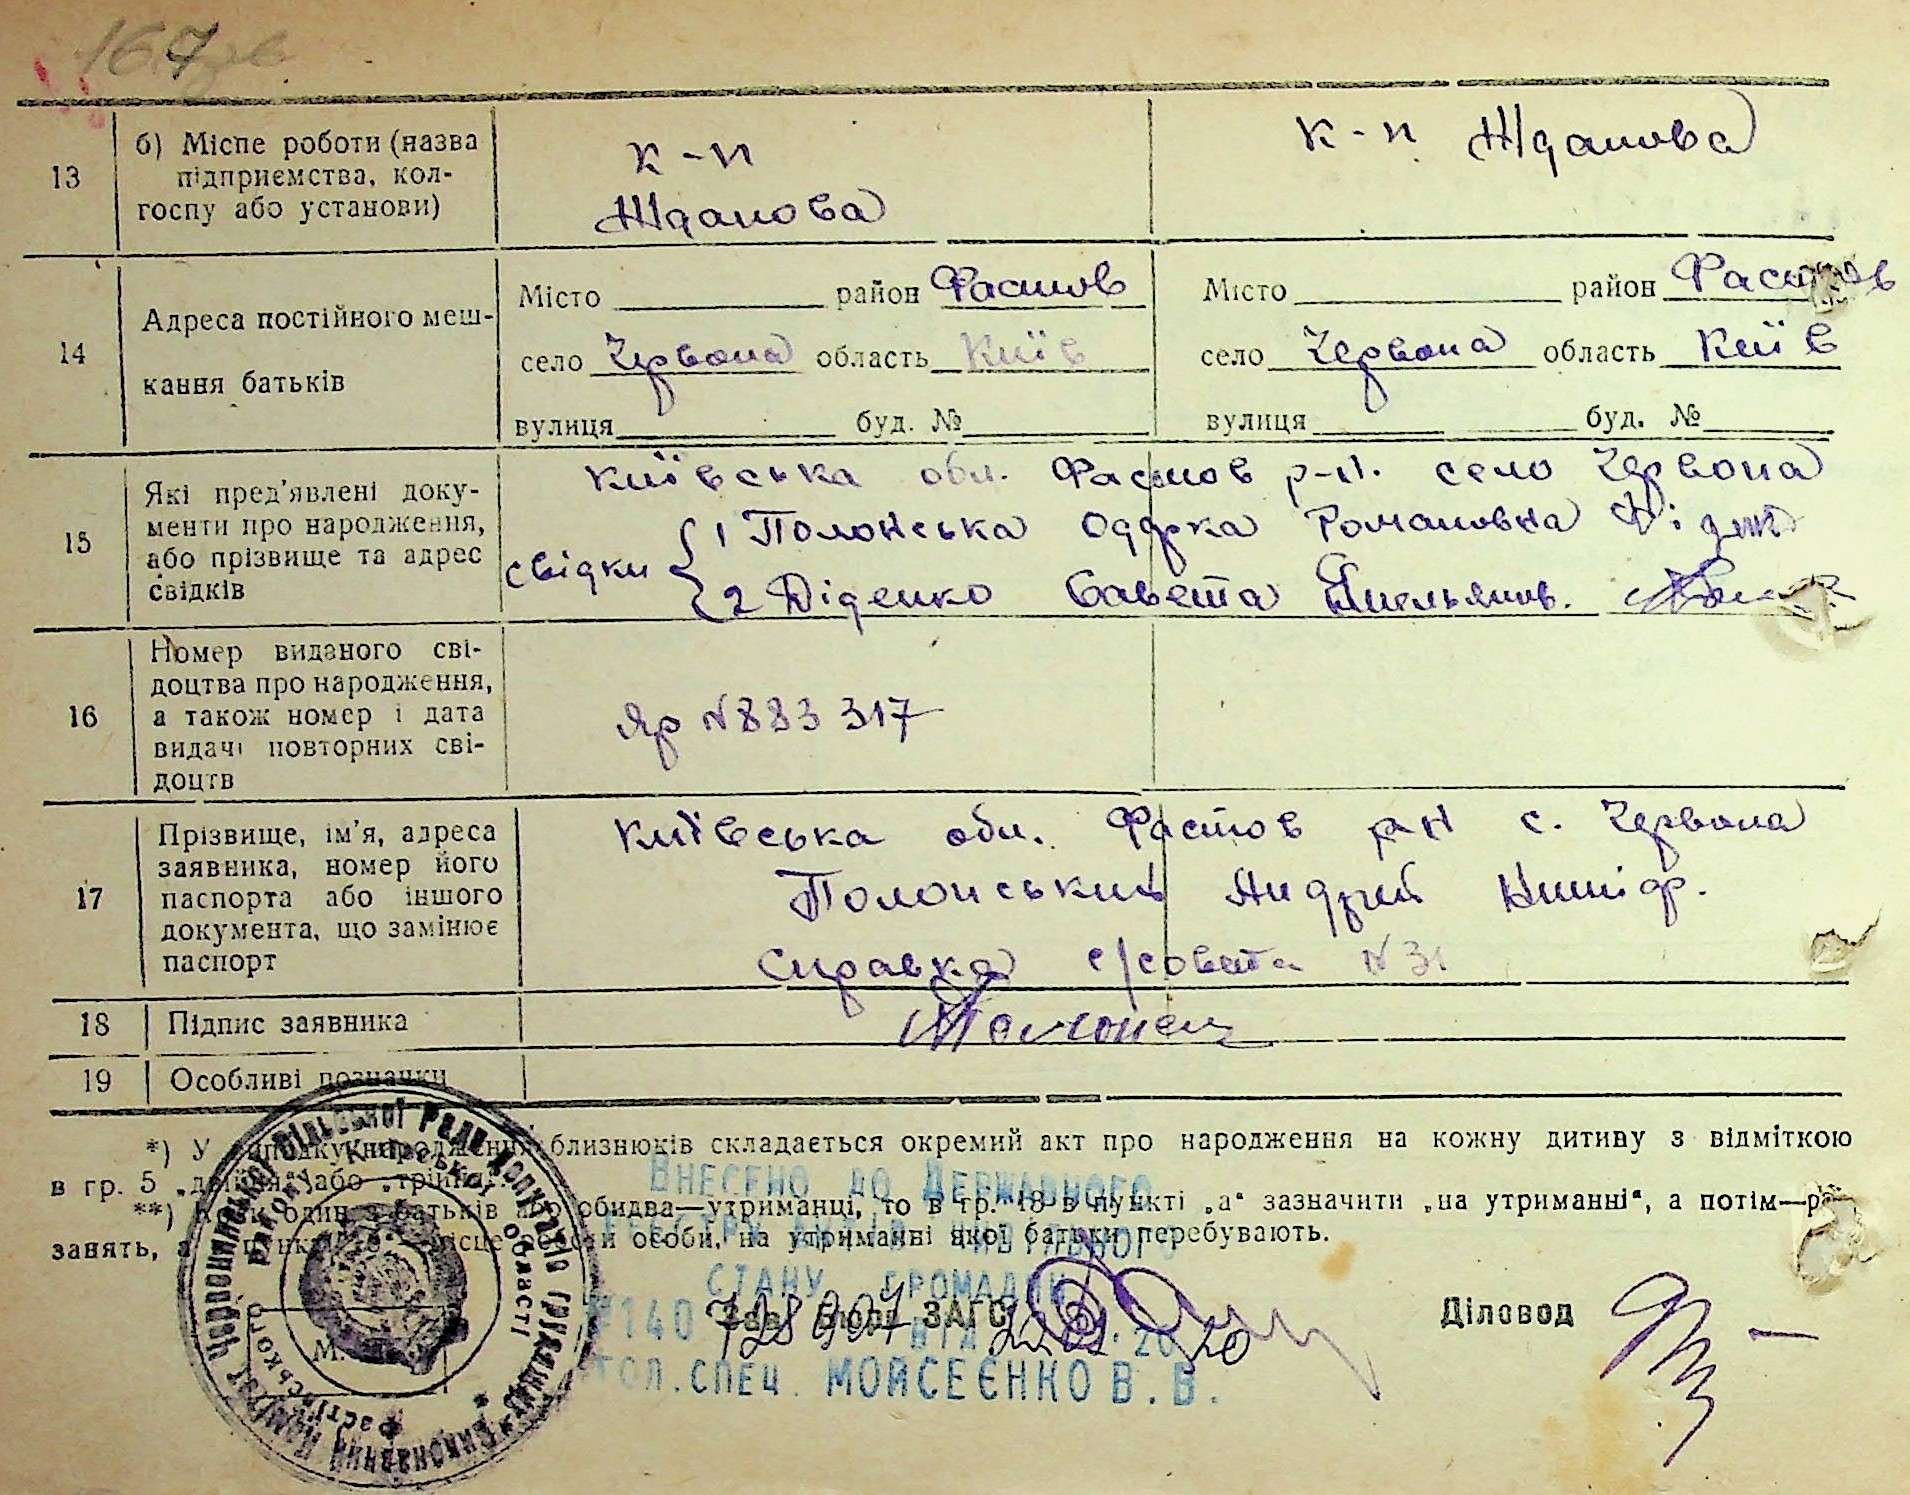 167 зв
13
б) Місце роботи (назва
підприємства, кол-
госпу або установи)
к-п
Жданова
к-п Жданова
14
Адреса постійного меш-
кання батьків
Місто район Фастов
село Червона область Київ
вулиця буд. №
Місто район Фастов
село Червона область Київ
вулиця буд. №
15
Які пред'явлені доку-
менти про народження,
або прізвище та адрес
свідків
Київська обл. Фастов р-н. село Червона
свідки 1 Полонська Одарка Романовна
2 Діденко Савета Омельянов.
16
Номер виданого сві-
доцтва про народження,
а також номер і дата
видачі повторних сві-
доцтв
Яр N 883317
17
Прізвище, ім'я, адреса
заявника, номер його
паспорта або іншого
документа, що замінює
паспорт
Київська обл. Фастов р-н с. Червона
Полонський Андрей
Справка с/совета N 31
18
Підпис заявника
19
Особливі позначки
*) У випадку народження близнюків складається окремий акт про народження на кожну дитину з відміткою
в гр. 5 „двійня“ або „трійня“.
**) Коли один з батьків або обидва—утриманці, то в гр. 13 в пункті „а“ зазначити „на утриманні“, а потім—р
занять, а в пункті місце роботи особи, на утриманні якої батьки перебувають.
Внесено до Державного
реєстру актів цивільного
стану громадян
Зав. бюро ЗАГС
Діловод
М.
від 20 20
гол. спец. Мойсеєнко В. В.
Виконавчий Комітет Червонянської сільської Ради депутатів трудящих
Фастівського району Київської області